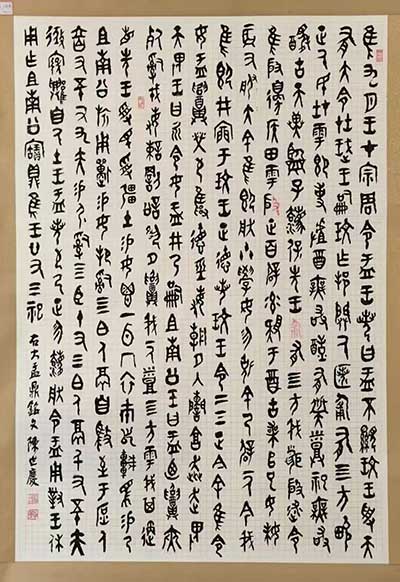 隹九月王才宗周令盂王若曰盂不顯玟王受天
有大令在珷王嗣玟乍邦闢厥匿匍有四方畯
正厥民在雩御事䣉酉無敢酖有祡烝祀無敢
醻古天異臨子灋保先王有四方我聞殷述令
隹殷邊侯田雩殷正百辟率肄于酉古喪師巳女妹
辰又大服余隹即朕小學女勿克余乃辟一人今我
隹即井稟于玟王正德若玟王令二三正今余隹令
女盂召榮敬雍德經敏朝夕入諫享奔走畏
天畏王曰而令女盂井乃嗣且南公王曰盂乃召夾
死司戎敏諫罰訟夙夕召我一人烝四方雩我其遹
省先王受民受疆土易女鬯一卣冂衣巿舄車馬易乃
且南公旂用狩易女邦司四白人鬲自馭至于庶人
六百又五十又九夫易尸司王臣十又三白人鬲千又五十夫
遷自厥土王曰盂若敬乃正勿灋朕令盂用對王休
用乍且南公寶鼎隹王廿又三祀 右大盂鼎銘文 陳世慶